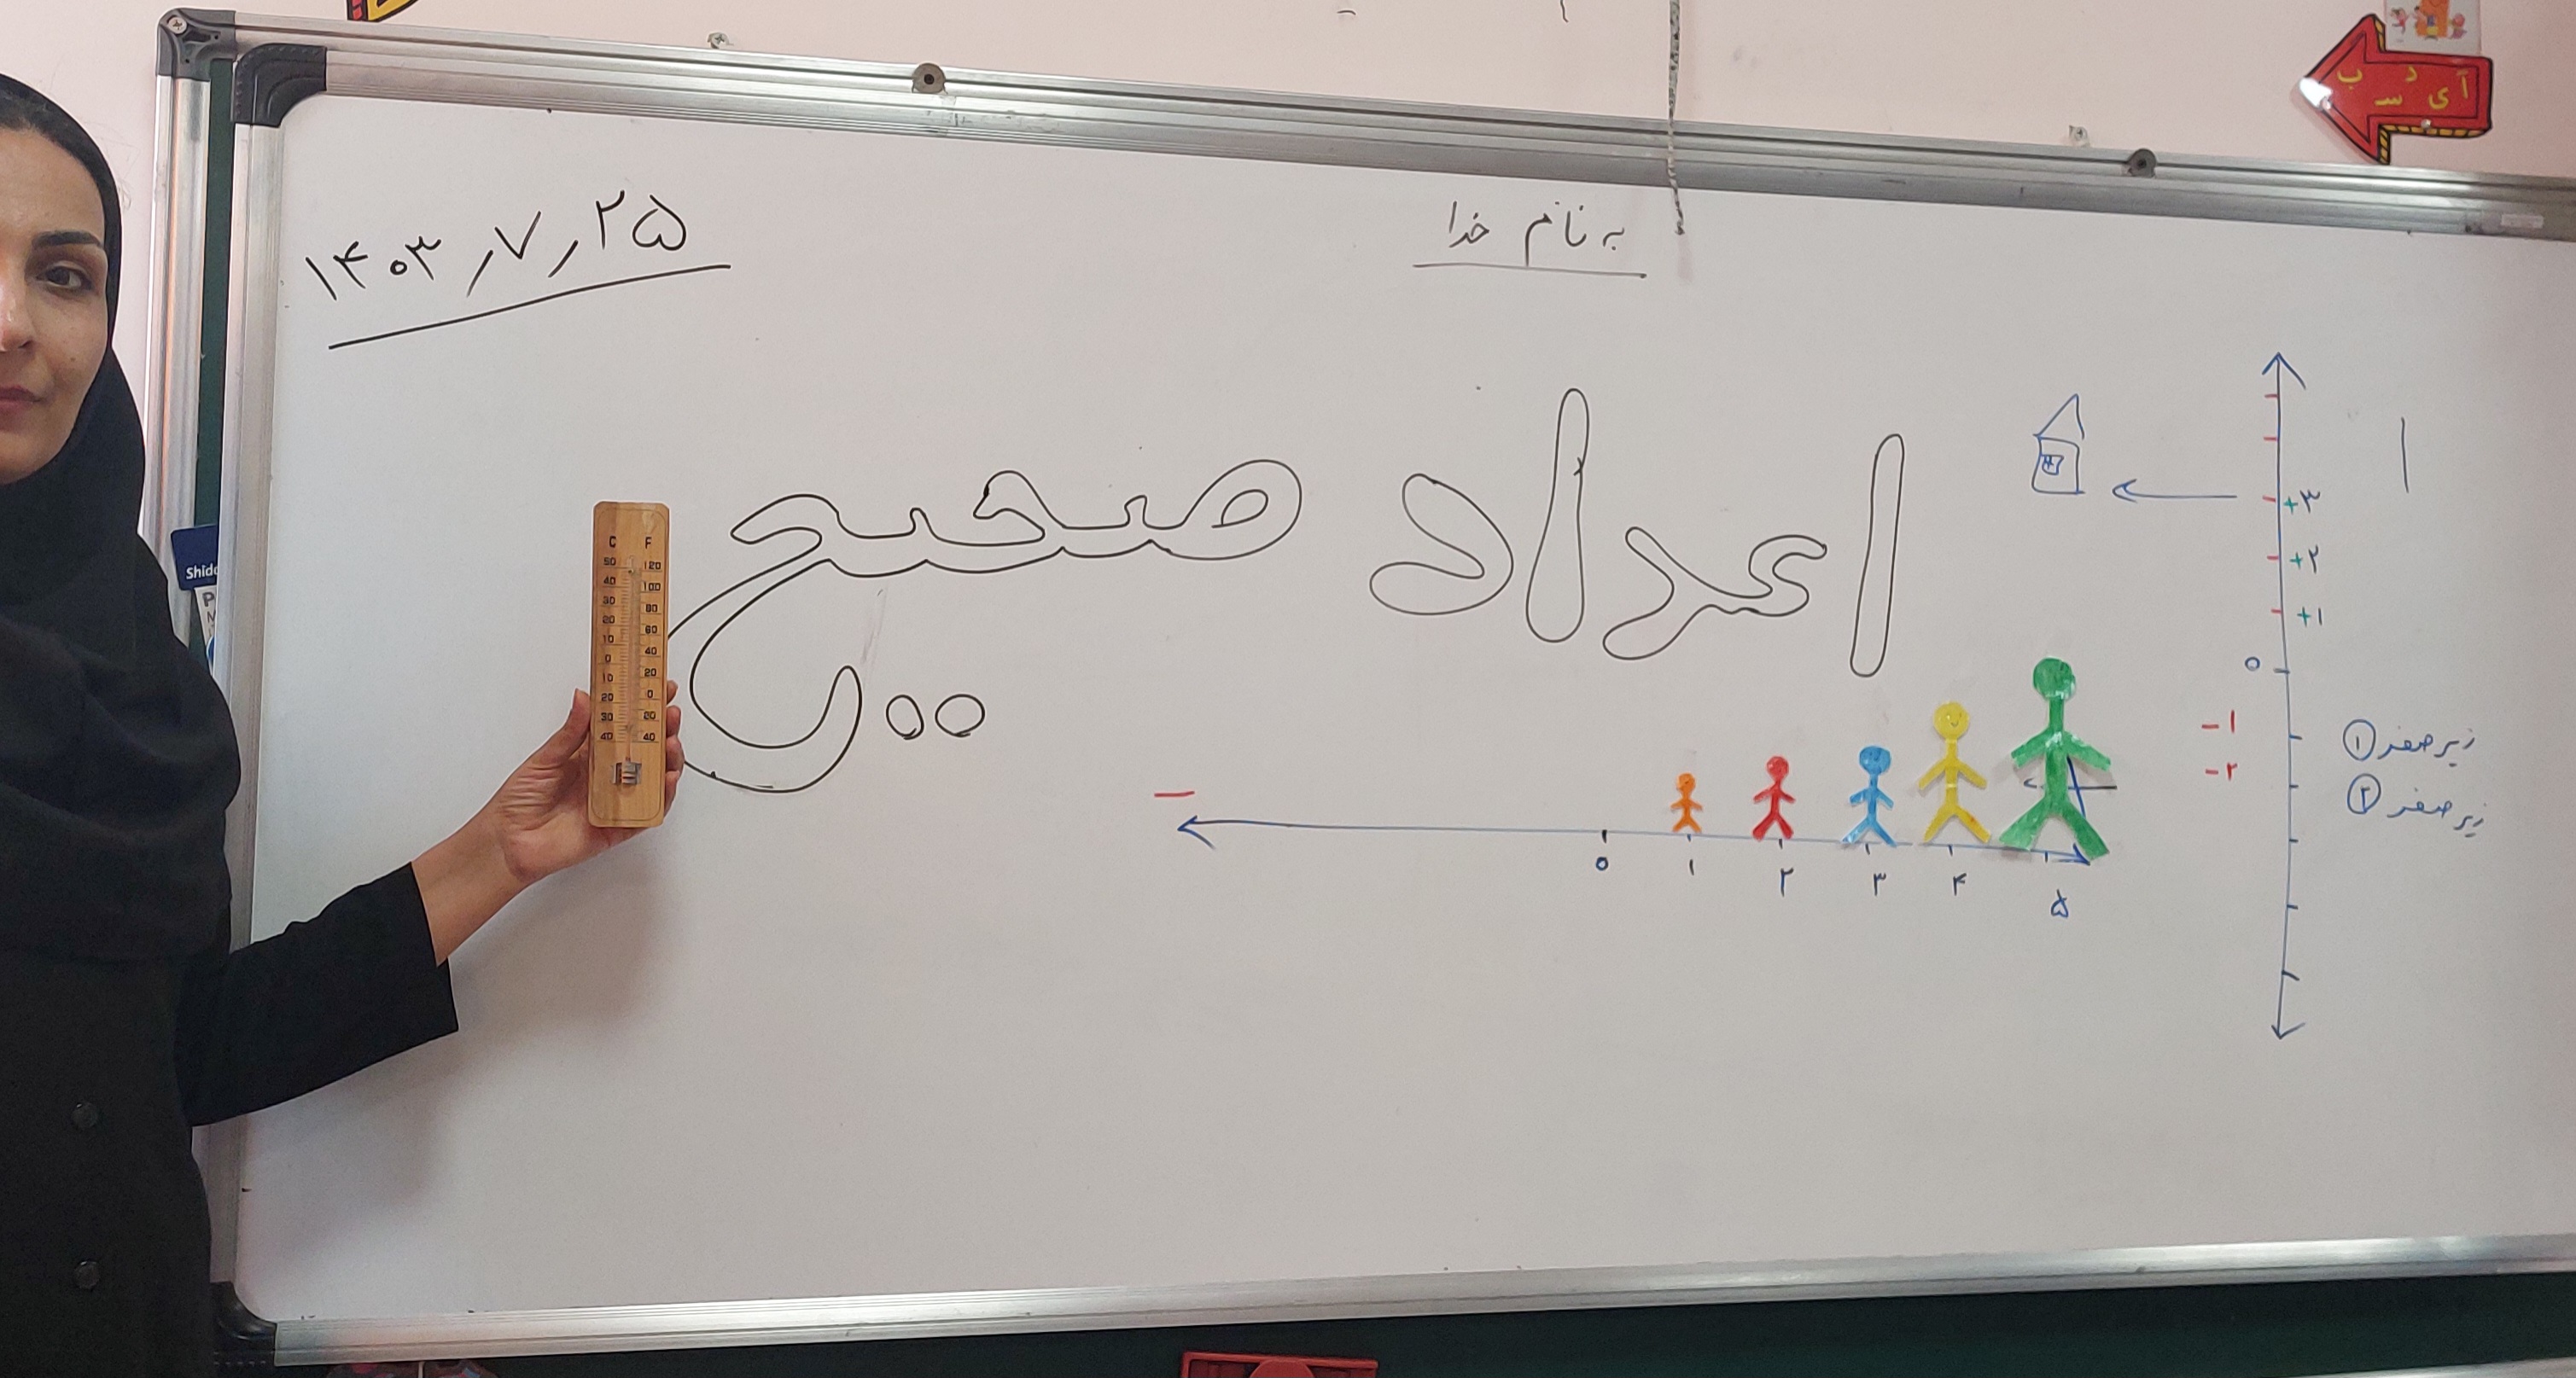 به نام خدا
۱۴۰۳٫۷٫۲۵
اعداد صحیح
+۳
+۲
+۱
۰
-۱
-۲
زیر صفر ①
زیر صفر ②
−
۰ ۱ ۲ ۳ ۴ ۵
C F
50 120
40 100
30 80
20 60
10 40
0 20
10 0
20 20
30 40
40
Shido